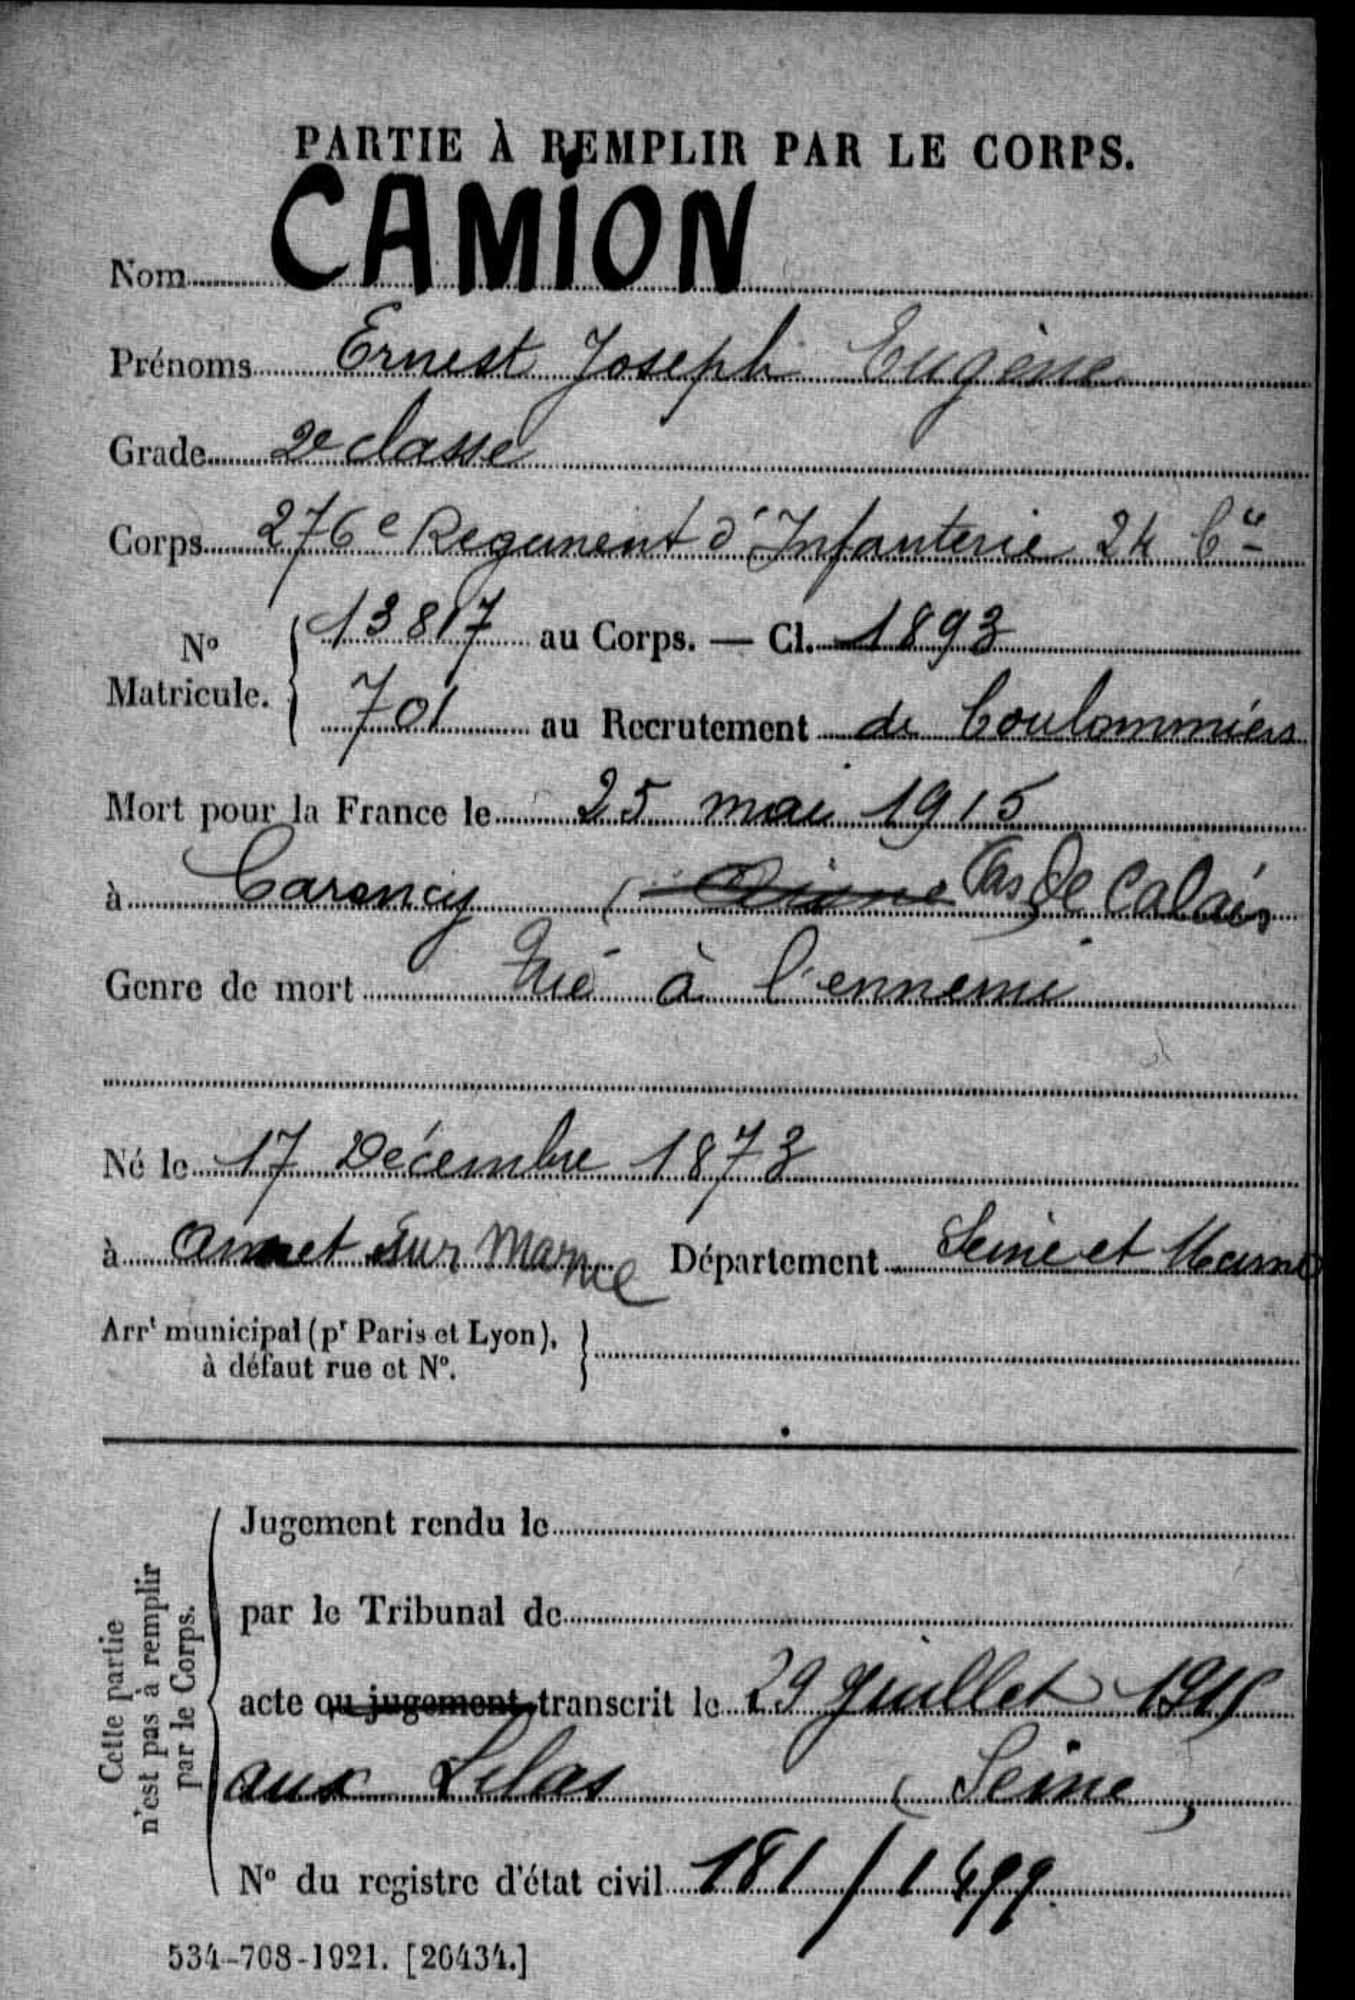 PARTIE À REMPLIR PAR LE CORPS.
Nom CAMION
Prénoms Ernest Joseph Eugène
Grade 2e classe
Corps 276e Regiment d'Infanterie 24 Cie
No Matricule. 13817 au Corps. — Cl. 1893
701 au Recrutement de Coulommiers
Mort pour la France le 25 mai 1915
à Carency (Aisne Pas de Calais
Genre de mort Tué à l'ennemi
Né le 17 Décembre 1873
à Annet sur Marne Département Seine et Marne
Arrt municipal (pr Paris et Lyon),
à défaut rue et No.
Cette partie
n'est pas à remplir
par le Corps.
Jugement rendu le
par le Tribunal de
acte ou jugement transcrit le 29 Juillet 1915
aux Lilas (Seine)
No du registre d'état civil 181 / 1499
534-708-1921. [26434.]